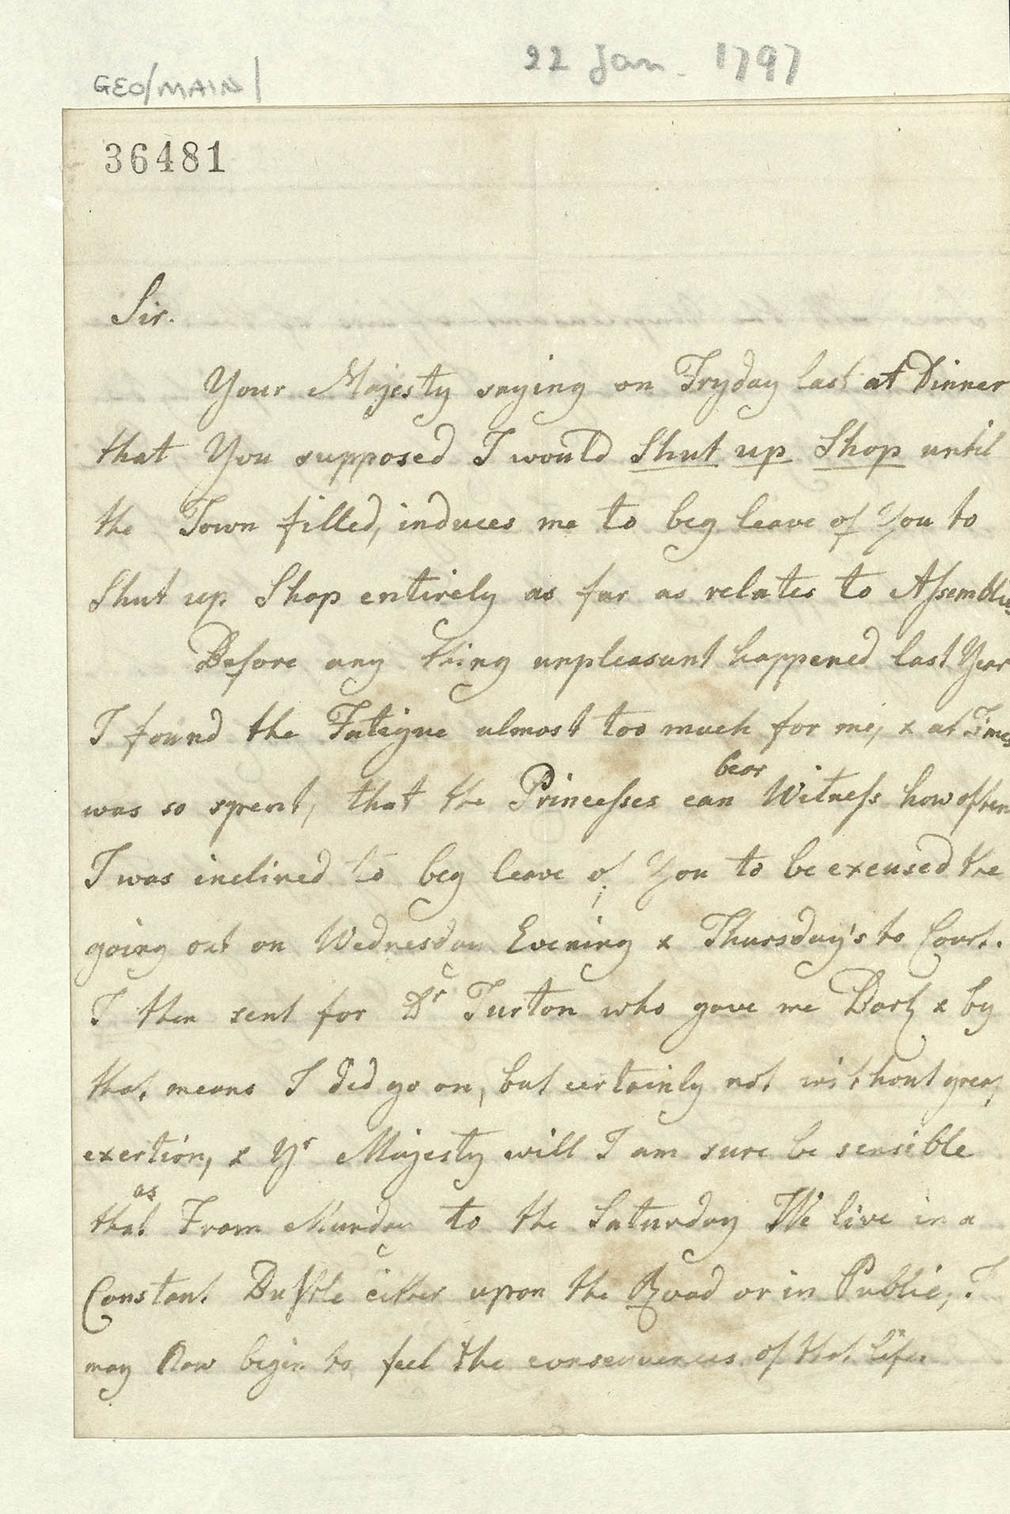 22 Jan. 1797
GEO/MAIN/
36481
Sir.
Your Majesty saying on Fryday last at Dinner
that You supposed I would Shut up Shop until
the Town filled, induces me to beg leave of You to
Shut up Shop entirely as far as relates to Assemblies
Before any thing unpleasant happened last Year
I found the Fatigue almost too much for me, & at Times
bear
was so spent, that the Princesses can Witness how often
I was inclined to beg leave of You to be excused the
going out on Wednesday Evening & Thursday's to Court.
I then sent for Dr Turton who gave me Bark & by
that means I did go on, but certainly not without great
exertion, & Yr Majesty will I am sure be sensible
as
that From Munday to the Saturday We live in a
Constant Bustle either upon the Road or in Public, I
may Now begin to feel the consequences of that life.